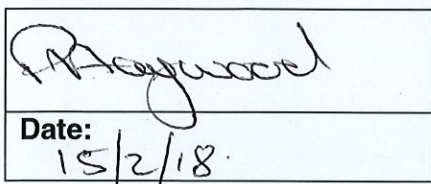 PHaywood
Date:
15/2/18.